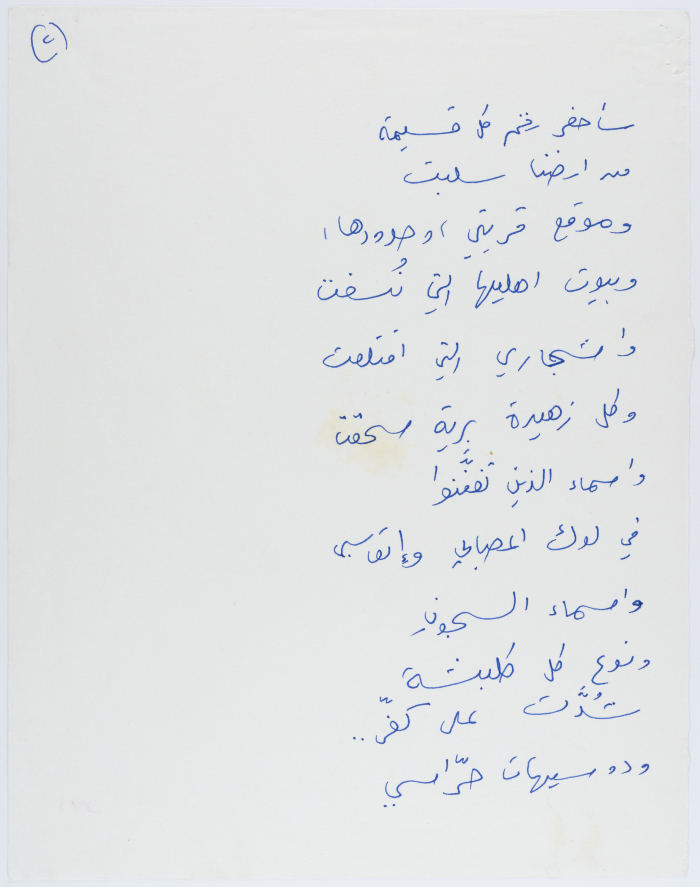 ٢
سأحفر رقم كل قسيمة
من ارضنا سلبت
وموقع قريتي، وحدودها،
وبيوت اهليها التي نُسفت
واشجاري التي اقتلعت
وكل زهيرة برية سحقت
واسماء الذين تفنَّنوا
في لوك اعصابي وإتعاسي
واسماء السجون
ونوع كل كلبشة
شُدَّت على كفّي..
ودوسيهات حرّاسي